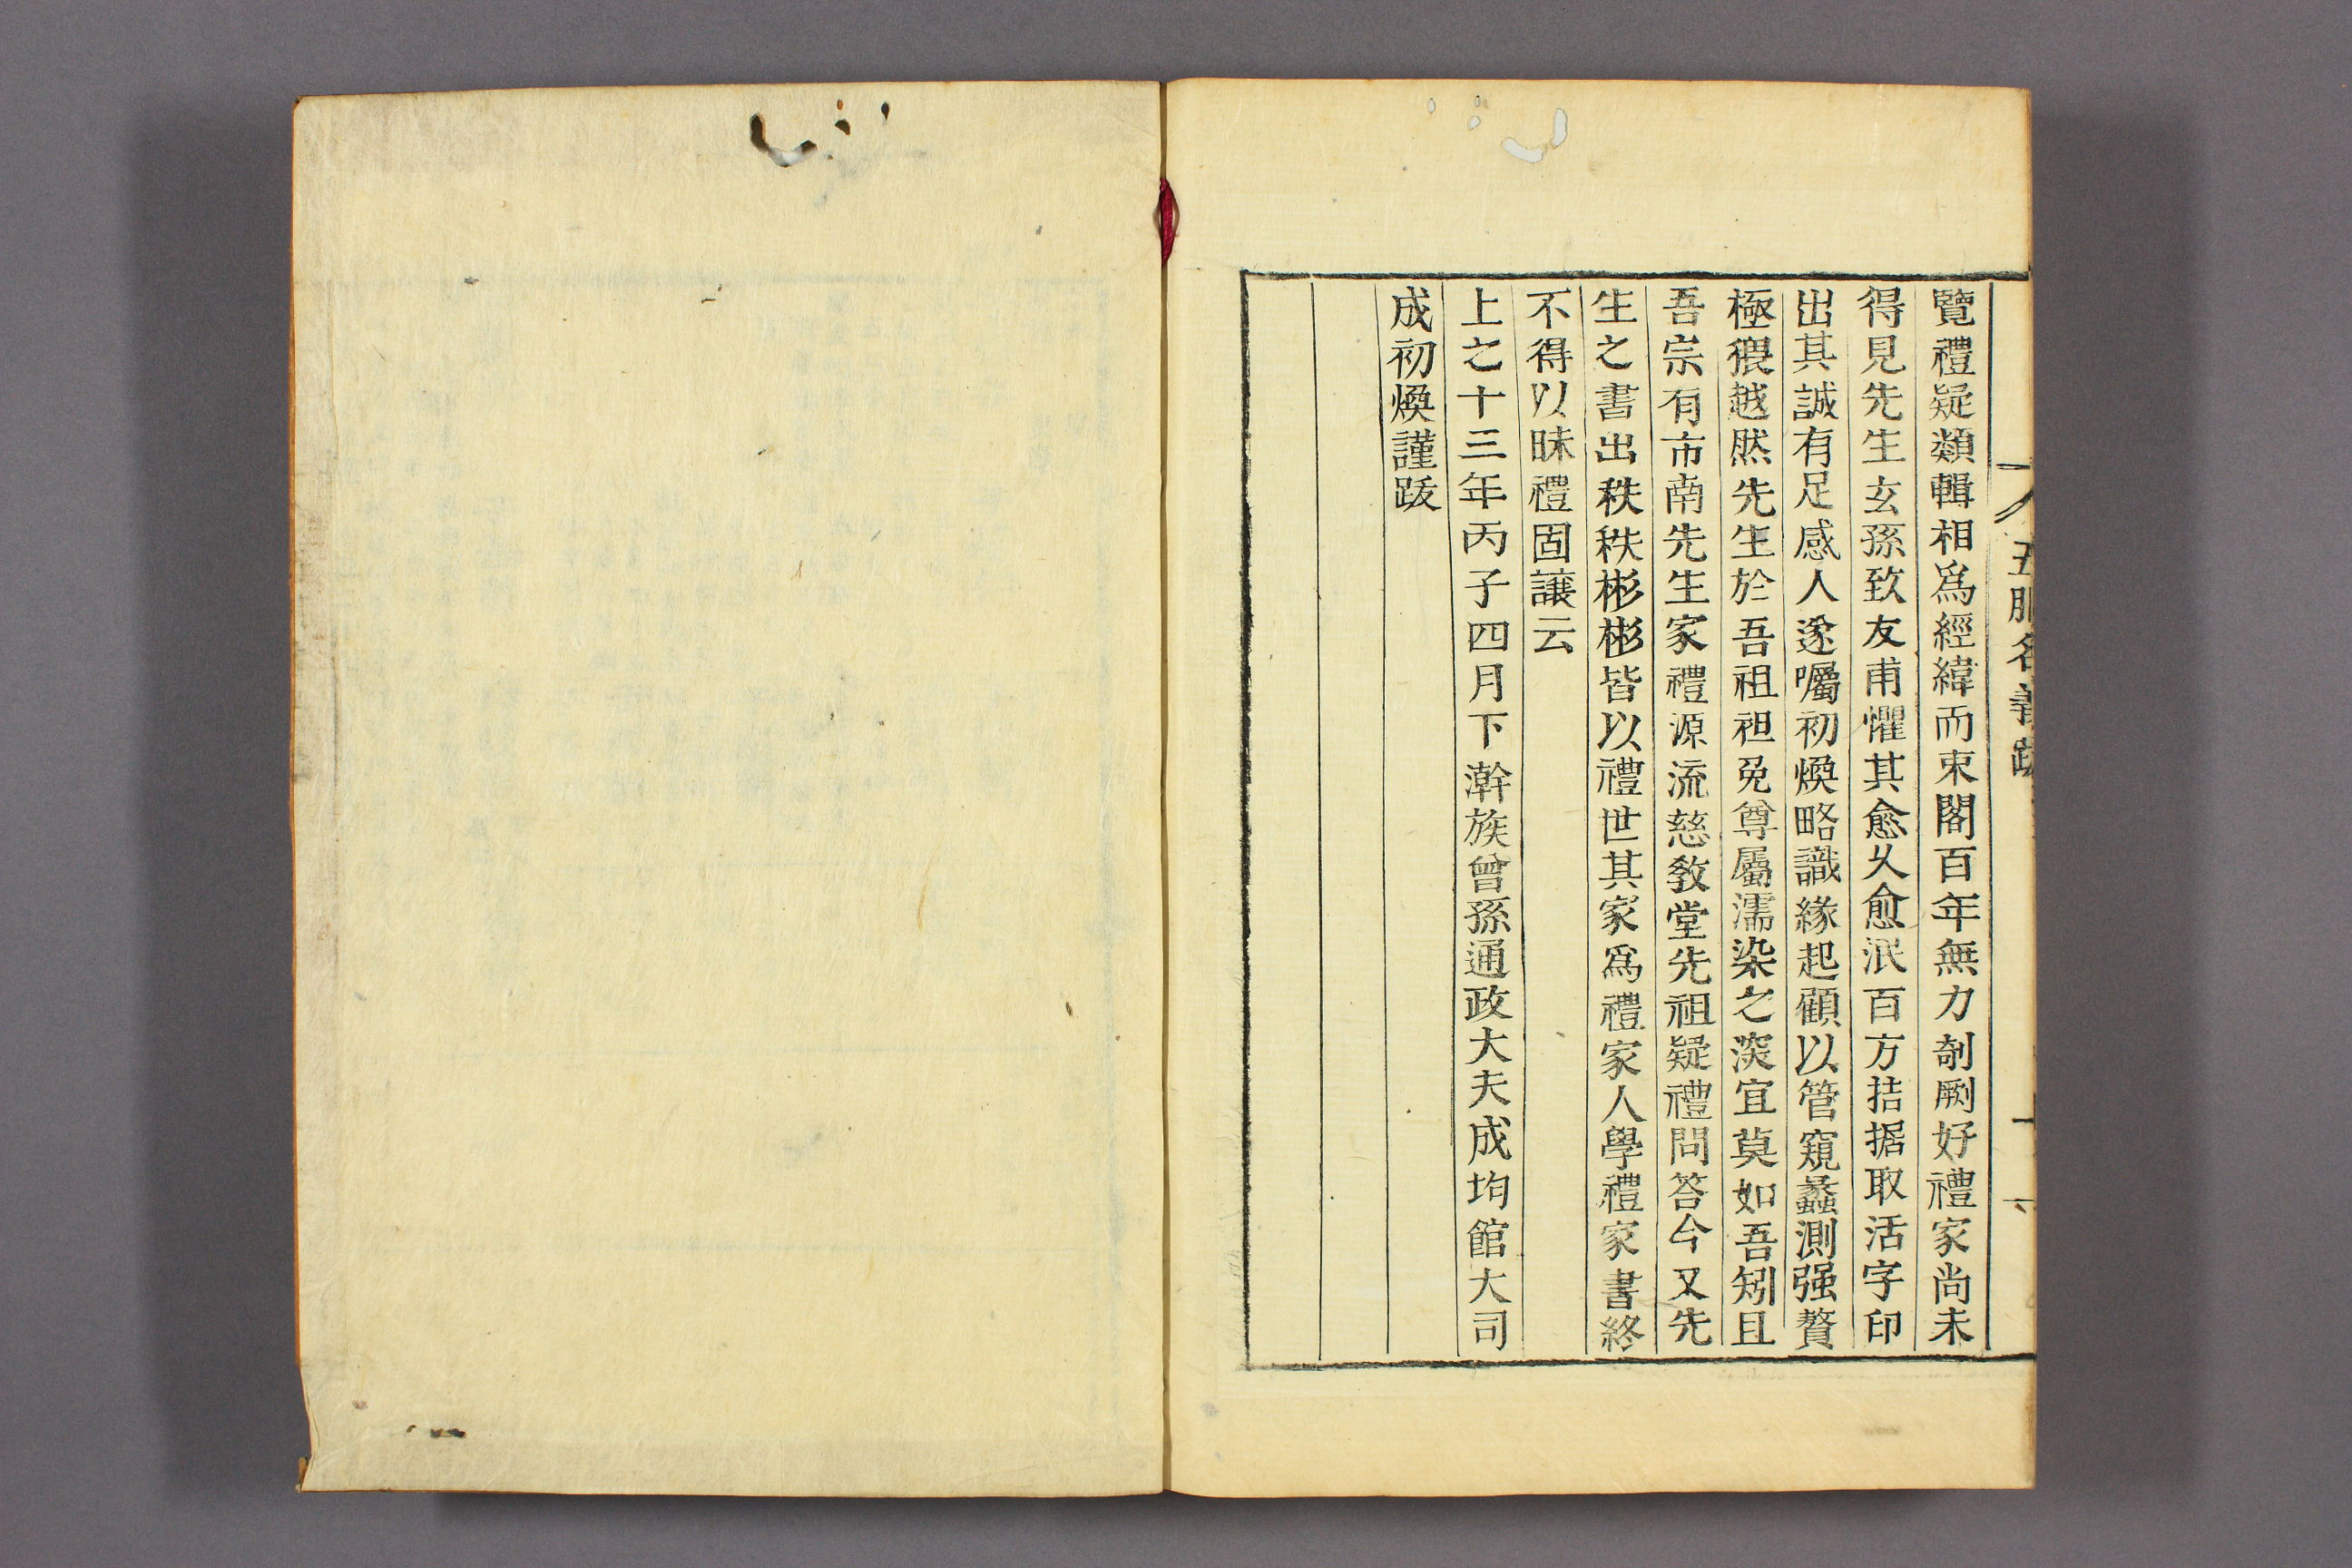 五服名義跋
覽禮疑類輯相爲經緯而束閣百年無力剞劂好禮家尚未
得見先生玄孫致友甫懼其愈久愈泯百方拮据取活字印
出其誠有足感人遂囑初煥略識緣起顧以管窺蠡測强贅
極猥越然先生於吾祖袒免尊屬濡染之深宜莫如吾矧且
吾宗有市南先生家禮源流慈敎堂先祖疑禮問答今又先
生之書出秩秩彬彬皆以禮世其家爲禮家人學禮家書終
不得以昧禮固讓云
上之十三年丙子四月下澣族曾孫通政大夫成均館大司
成初煥謹跋